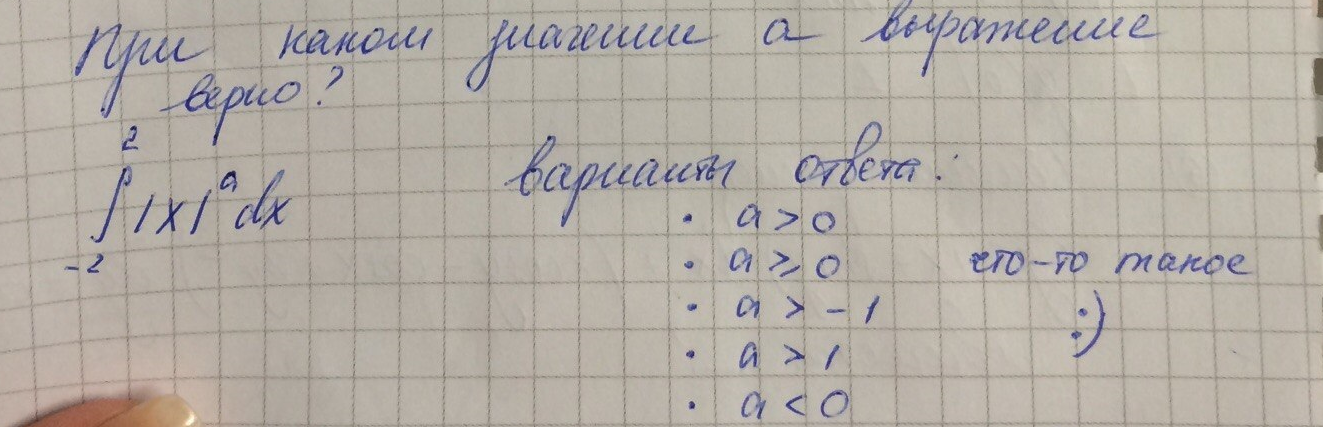 При каком значении a выражение
верно?
2
∫|x|ᵃdx
-2
варианты ответа:
· a > 0
· a ⩾ 0 что-то такое
· a > -1 :)
· a > 1
· a < 0